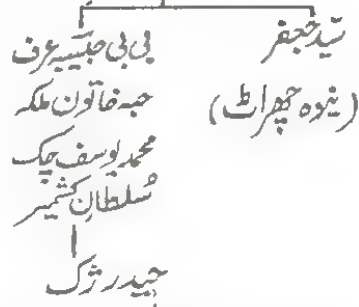 سید جعفر
(نیوہ چھراٹ)
بی بی حبیبہ عرف
حبہ خاتون ملکہ
محمد یوسف چک
سُلطانِ کشمیر
حیدر ژک